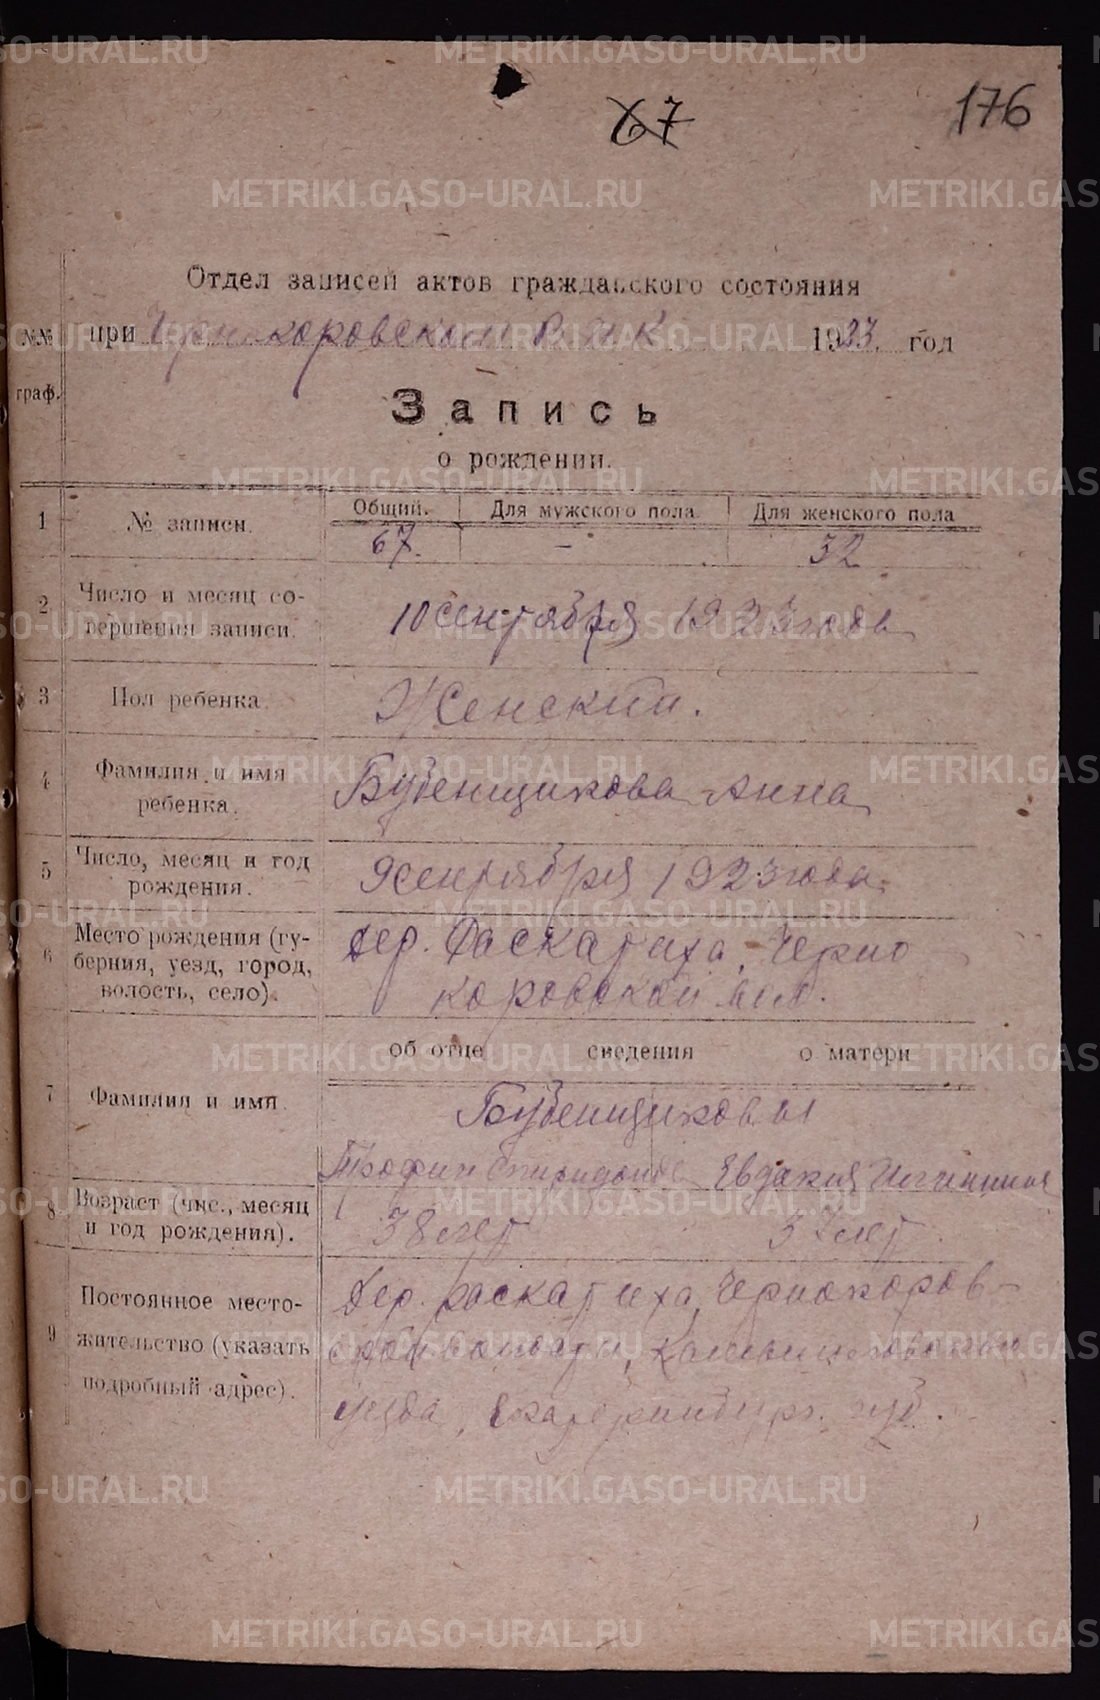 67
176
Отдел записей актов гражданского состояния
№№ при Чернокоровском ВИК 1923 год
граф.
Запись
о рождении.
1 № записи. Общий. Для мужского пола. Для женского пола
67. – 32
2 Число и месяц со-
вершения записи. 10 сентября 1923 года
3 Пол ребенка Женский.
4 Фамилия и имя
ребенка. Бубенщикова Анна
5 Число, месяц и год
рождения. 9 сентября 1923 года.
6 Место рождения (гу-
берния, уезд, город,
волость, село). дер. Раскатиха, Черно
коровской вол.
об отце сведения о матери
7 Фамилия и имя Бубенщиковы
Трофим Спиридонов Евдакия
8 Возраст (чис., месяц
и год рождения). 38 лет 37 лет
9 Постоянное место-
жительство (указать
подробный адрес). Дер. Раскатиха, Чернокоров-
ской волости, Камышловского
уезда, Екатеринбург. губ.
METRIKI.GASO-URAL.RU